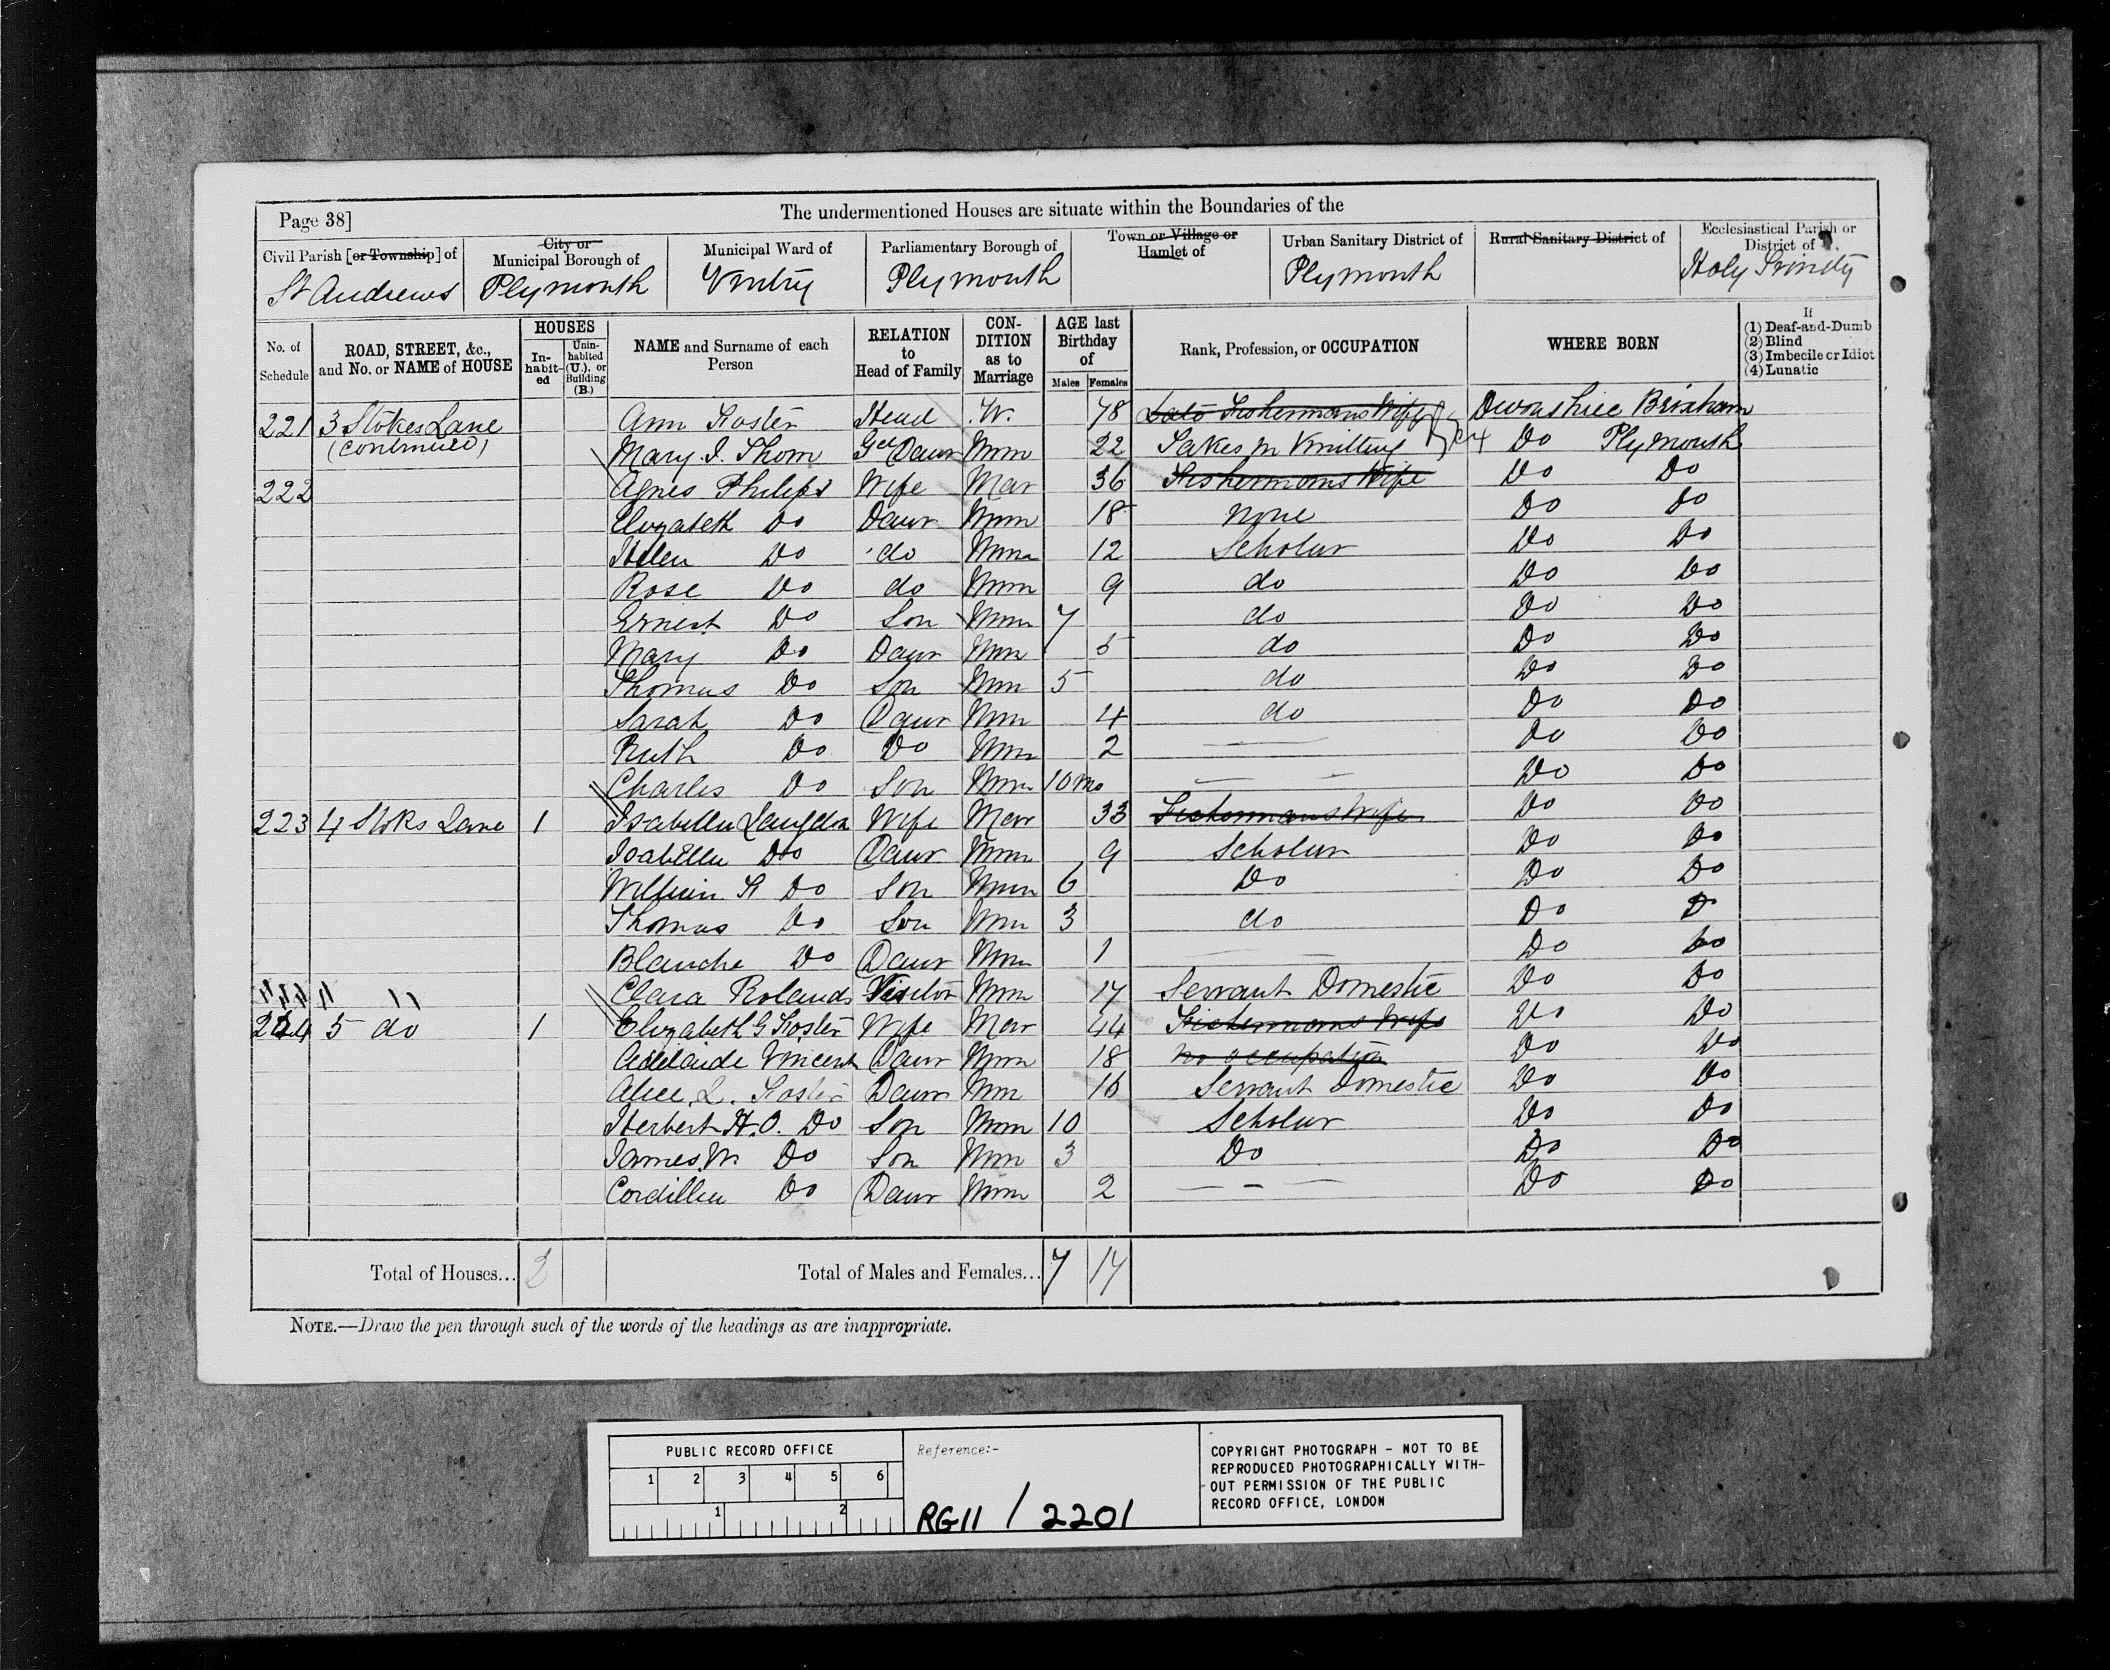 Page 38]
The undermentioned Houses are situate within the Boundaries of the
Civil Parish [or Township] of
City or Municipal Borough of
Municipal Ward of
Parliamentary Borough of
Town or Village or Hamlet of
Urban Sanitary District of
Rural Sanitary District of
Ecclesiastical Parish or District of
St Andrews Plymouth Vintry Plymouth Plymouth Holy Trinity
No. of Schedule
ROAD, STREET, &c., and No. or NAME of HOUSE
HOUSES
In-habit-ed
Unin-habited (U.), or Building (B.)
NAME and Surname of each Person
RELATION to Head of Family
CON-DITION as to Marriage
AGE last Birthday of
Males Females
Rank, Profession, or OCCUPATION
WHERE BORN
If
(1) Deaf-and-Dumb
(2) Blind
(3) Imbecile or Idiot
(4) Lunatic
221 3 Stokes Lane Ann Foster Head W. 78 Late Fishermans Wife Devonshire Brixham
(continued) Mary J. Thom Gd Daur Unm 22 Takes in Knitting Do Plymouth
222 Agnes Philips Wife Mar 36 Fishermans Wife Do Do
Elizabeth Do Daur Unm 18 none Do Do
Hellen Do do Unm 12 Scholar Do Do
Rose Do do Unm 9 do Do Do
Ernest Do Son Unm 7 do Do Do
Mary Do Daur Unm 5 do Do Do
Thomas Do Son Unm 5 do Do Do
Sarah Do Daur Unm 4 do Do Do
Ruth Do Do Unm 2 Do Do
Charles Do Son Unm 10 mo Do Do
223 4 Stoks Lane 1 Isabella Langdon Wife Mar 33 Fishermans Wife Do Do
Isabella Do Daur Unm 9 Scholar Do Do
William R Do Son Unm 6 Do Do Do
Thomas Do Son Unm 3 do Do Do
Blanche Do Daur Unm 1 Do Do
Clara Rolands Visitor Unm 17 Servant Domestic Do Do
224 5 do 1 Elizabeth G Foster Wife Mar 44 Fishermans Wife Do Do
Adelaide Vincent Daur Unm 18 no occupation Do Do
Alice L. Foster Daur Unm 16 Servant Domestic Do Do
Herbert H.O. Do Son Unm 10 Scholar Do Do
James M Do Son Unm 3 Do Do Do
Cordillia Do Daur Unm 2 Do Do
Total of Houses... 2 Total of Males and Females... 7 17
NOTE.—Draw the pen through such of the words of the headings as are inappropriate.
PUBLIC RECORD OFFICE
1 2 3 4 5 6
1 2
Reference:-
RG11 / 2201
COPYRIGHT PHOTOGRAPH - NOT TO BE
REPRODUCED PHOTOGRAPHICALLY WITH-
OUT PERMISSION OF THE PUBLIC
RECORD OFFICE, LONDON